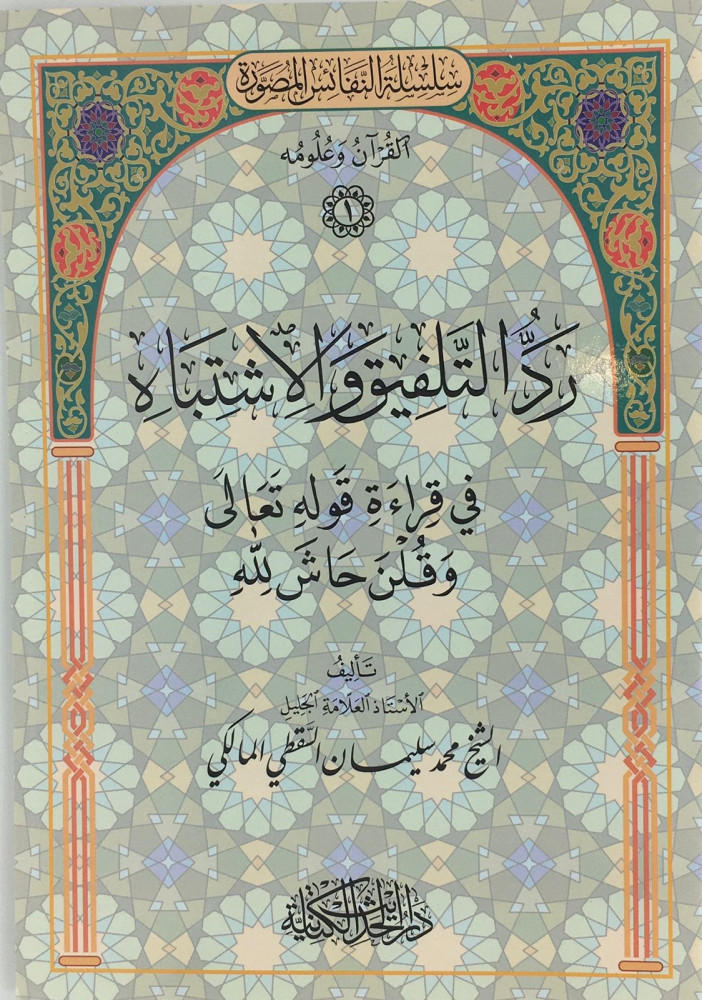 سِلْسِلَةُ النَّفَائِسِ المُصَوَّرَة
القُرْآنُ وَعُلُومُه
١
رَدُّ التَّلْفِيقِ وَالِاشْتِبَاهِ
فِي قِرَاءَةِ قَوْلِهِ تَعَالَى
وَقُلْنَ حَاشَ لِلَّهِ
تَأْلِيفُ
الأُسْتَاذِ العَلَّامَةِ الجَلِيلِ
الشيخ محمد سليمان السَّقَطي المالكي
دار الحديث الكتانية